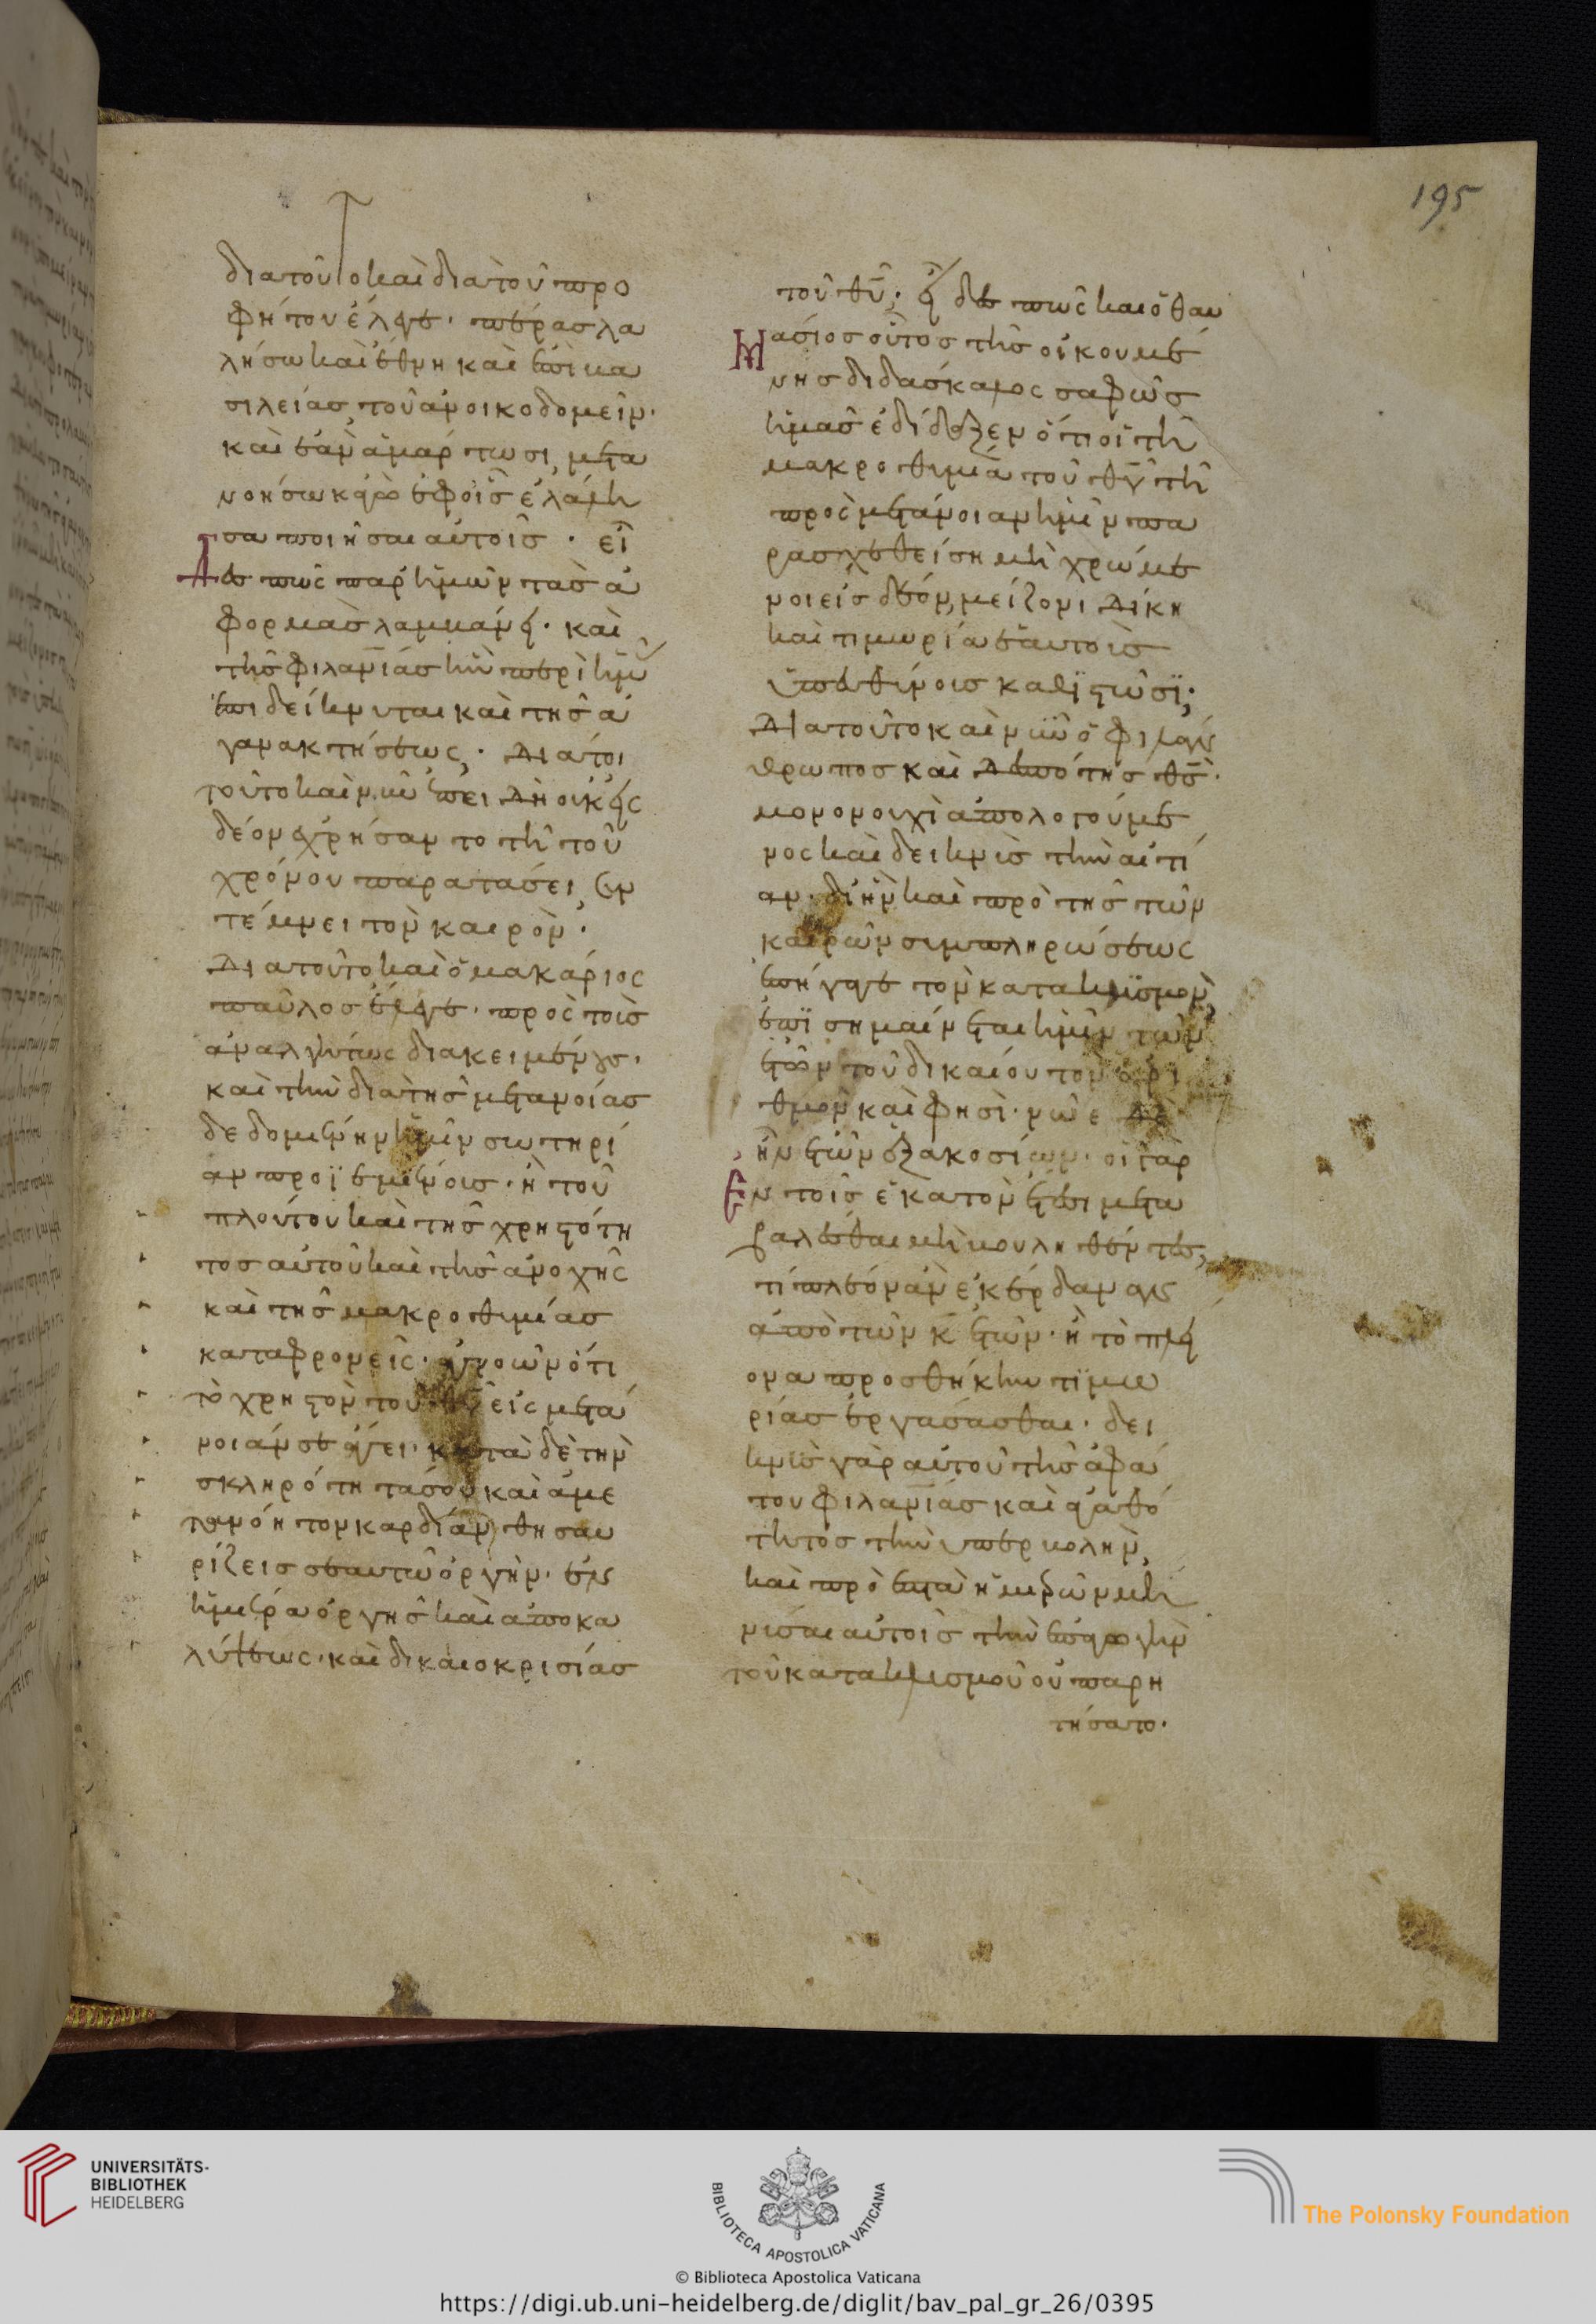 διατοῦτο καὶ διὰ τοῦ προ
φήτου ἔλεγε· πέρας λα
λήσω καὶ ἔθνη καὶ ἐπὶ βα
σιλείας τοῦ ἀνοικοδομεῖν·
καὶ ἐὰν ἁμαρτωσι, μετα
νοήσω κἀγὼ ἐφοῖς ἐλάλη
σα ποιῆσαι αὐτοῖς· εἶ
δες πῶς παρ' ἡμῶν τὰς ἀ
φορμὰς λαμβάνει· καὶ
τῆς φιλανίας ἣν περὶ ἡμῶν
ἐπιδείκνυται καὶ τῆς ἀ
γανακτήσεως· διάτοι
τοῦτο καὶ νῦν ἐπειδὴ οὐκ εἰς
δέον ἐχρήσαντο τῆ τοῦ
χρόνου παρατάσει, συν
τέμνει τὸν καιρὸν·
Διατοῦτο καὶ ὁ μακάριος
παῦλος ἔλεγε· πρὸς τοὺς
ἀναλγήτως διακειμένους·
καὶ τὴν διὰ τῆς μετανοίας
δεδομένην ἡμῖν σωτηρί
αν προϊεμένοις· ἢ τοῦ
πλούτου καὶ τῆς χρηστότη
τος αὐτοῦ καὶ τῆς ἀνοχῆς
καὶ τῆς μακροθυμίας
καταφρονεῖς· ἀγνοῶν ὅτι
τὸ χρηστὸν τοῦ θῦ εἰς μετά
νοιάν σε ἄγει· κατὰ δὲ τὴν
σκληρότητά σου καὶ ἀμε
τανόητον καρδίαν, θησαυ
ρίζεις σεαυτῶ ὀργὴν· ἐν
ἡμέρα ὀργῆς καὶ ἀποκα
λύψεως· καὶ δικαιοκρισίας
195
τοῦ θῦ· εἶδες πῶς καὶ ὁ θαυ
μάσιος οὗτος τῆς οἰκουμέ
νης διδάσκαλος σαφῶς
ἡμᾶς ἐδίδαξεν ὅτι οἱ τῆ
μακροθυμία τοῦ θῦ τῆ
πρὸς μετάνοιαν ἡμῖν πα
ρασχεθείση μὴ χρώμε
νοι εἰς δέον, μείζονι δίκη
καὶ τιμωρία ἑαυτοὺς
ὑπευθύνους καθιστῶσι;
Διατοῦτο καὶ νῦν ὁ φιλάν
θρωπος καὶ δεσπότης θς·
μονονουχὶ ἀπολογούμε
νος καὶ δεικνὺς τὴν αἰτί
αν· δι' ἣν καὶ πρὸ τῆς τῶν
καιρῶν συμπληρώσεως
ἐπήγαγε τὸν κατακλυσμὸν,
ἐπισημαίνεται ἡμῖν τῶν
ἐτῶν τοῦ δικαίου τὸν ἀρι
θμὸν καὶ φησὶ· νῶε δὲ
ἦν ἐτῶν ἑξακοσίων· οἱ γὰρ
ἐν τοῖς ἑκατὸν ἔτεσι μετα
βαλέσθαι μὴ βουληθέντες,
τί πλέον ἂν ἐκέρδαναν
ἀπὸ τῶν κ ἐτῶν· ἢ τὸ πλεί
ονα προσθήκην τιμω
ρίας ἐργάσασθαι· δει
κνὺς γὰρ αὐτοῦ τῆς ἀφά
του φιλανίας καὶ ἀγαθό
τητος τὴν ὑπερβολὴν,
καὶ πρὸ ἑπτὰ ἡμερῶν μη
νῦσαι αὐτοῖς τὴν ἐπαγωγὴν
τοῦ κατακλυσμοῦ οὐ παρη
τήσατο·
UNIVERSITÄTS-
BIBLIOTHEK
HEIDELBERG
BIBLIOTECA APOSTOLICA VATICANA
The Polonsky Foundation
© Biblioteca Apostolica Vaticana
https://digi.ub.uni-heidelberg.de/diglit/bav_pal_gr_26/0395